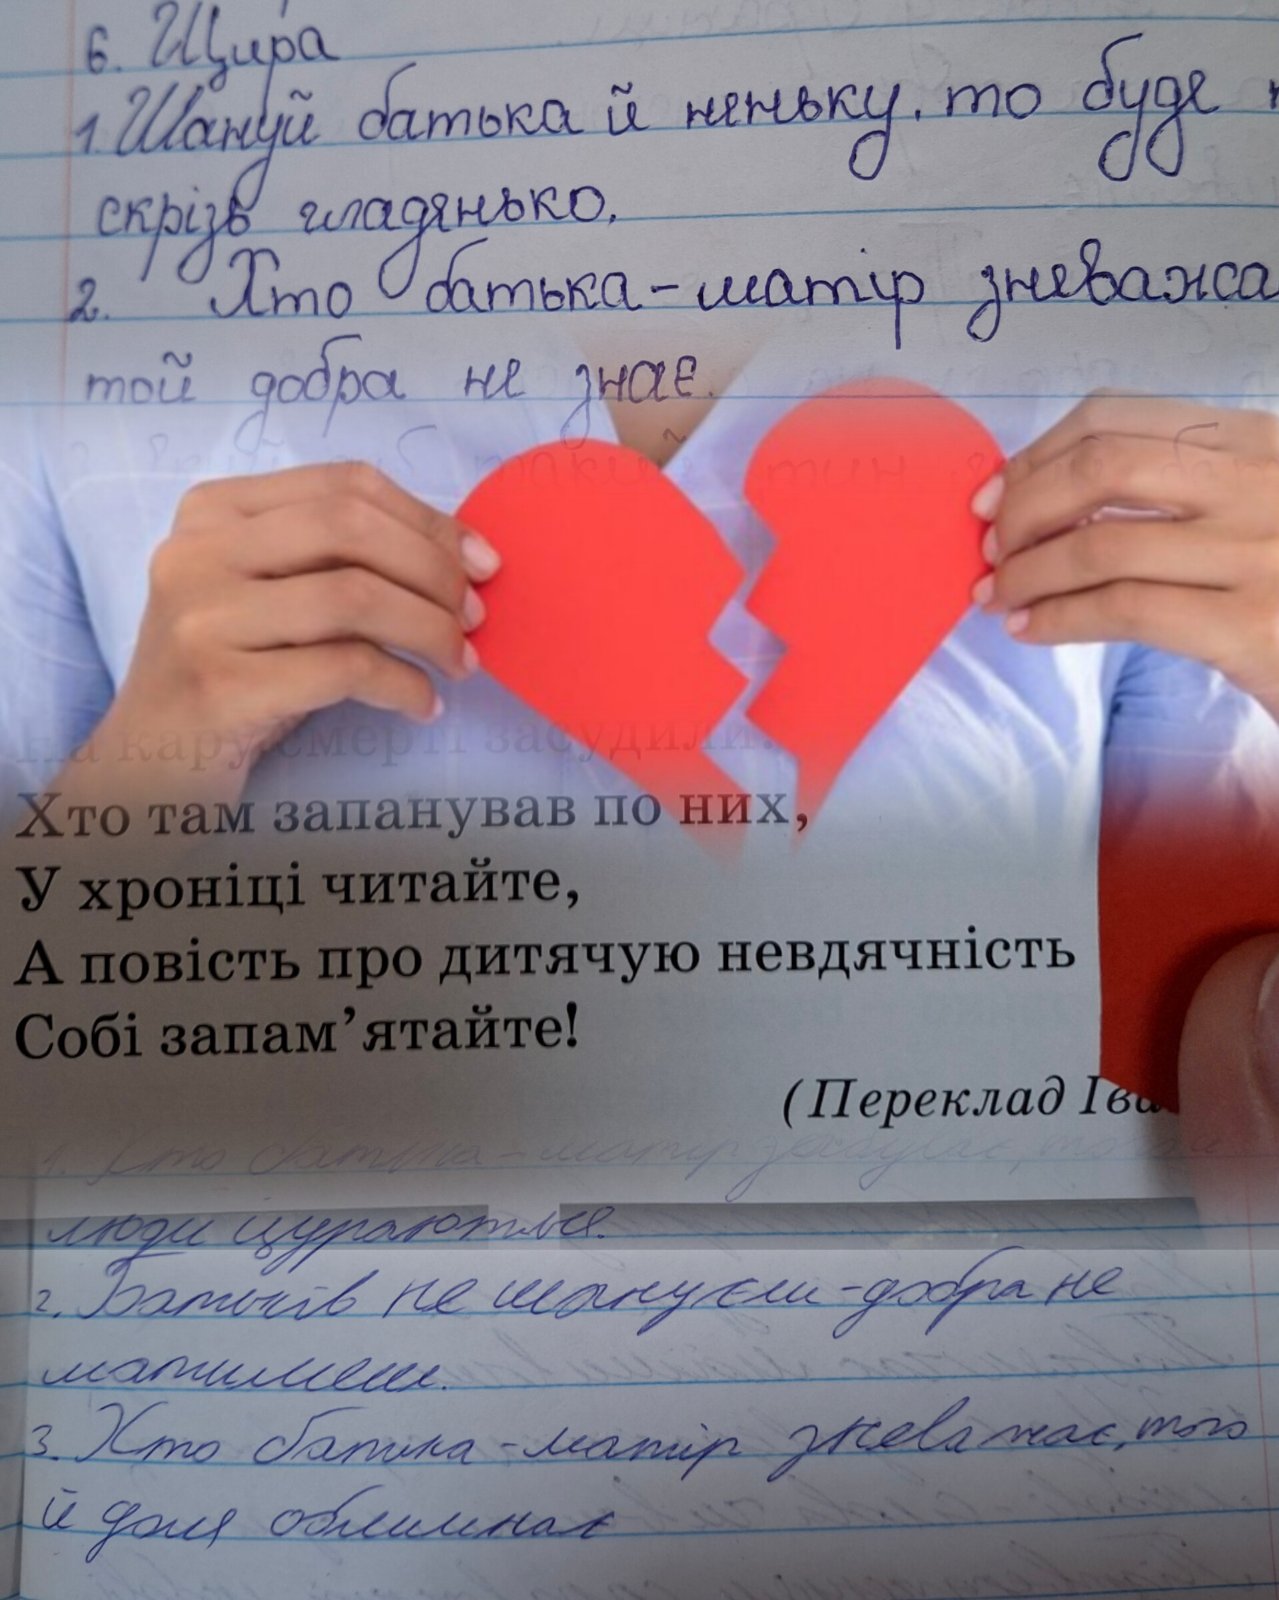 6. Щира
1. Шануй батька й неньку, то буде
скрізь гладенько.
2. Хто батька-матір зневажа
той добра не знає.
такий тин
На кару смерті засудили.
Хто там запанував по них,
У хроніці читайте,
А повість про дитячую невдячність
Собі запам’ятайте!
(Переклад Іва
1. Хто батька-матір забуває,
люди цураються.
2. Батьків не шануєш-добра не
матимеш.
3. Хто батька-матір зневажає, того
й доля обминає